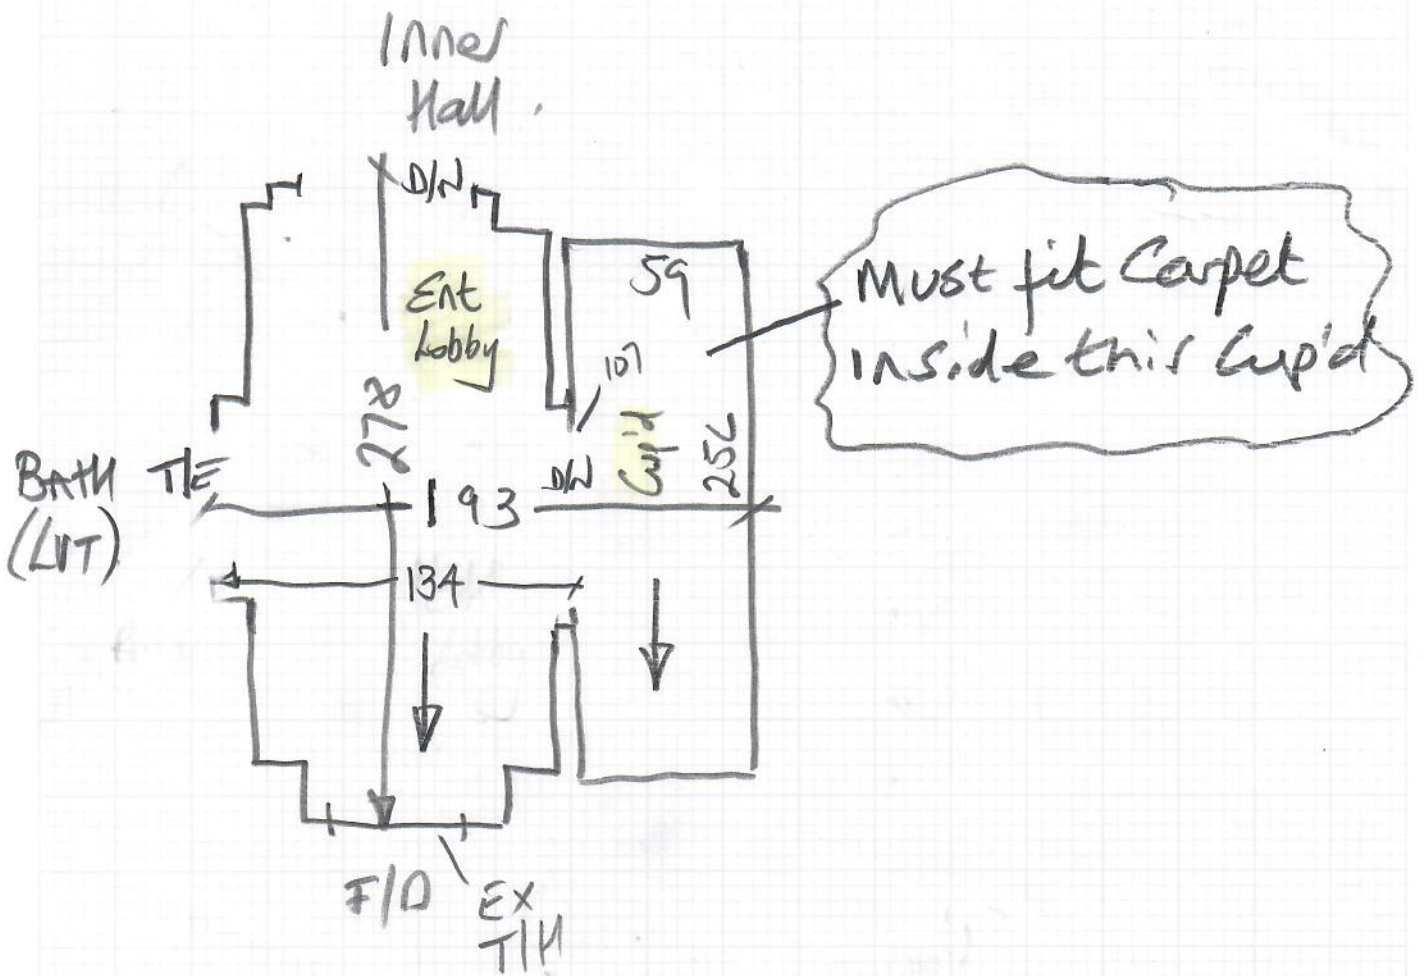 Inner
Hall.
D/N
Ent
Lobby
59
Must fit Carpet
inside this Cup'd
107
278
Cup'd
BATH T/E
(LVT)
193
D/N
134
F/D
EX
T/H